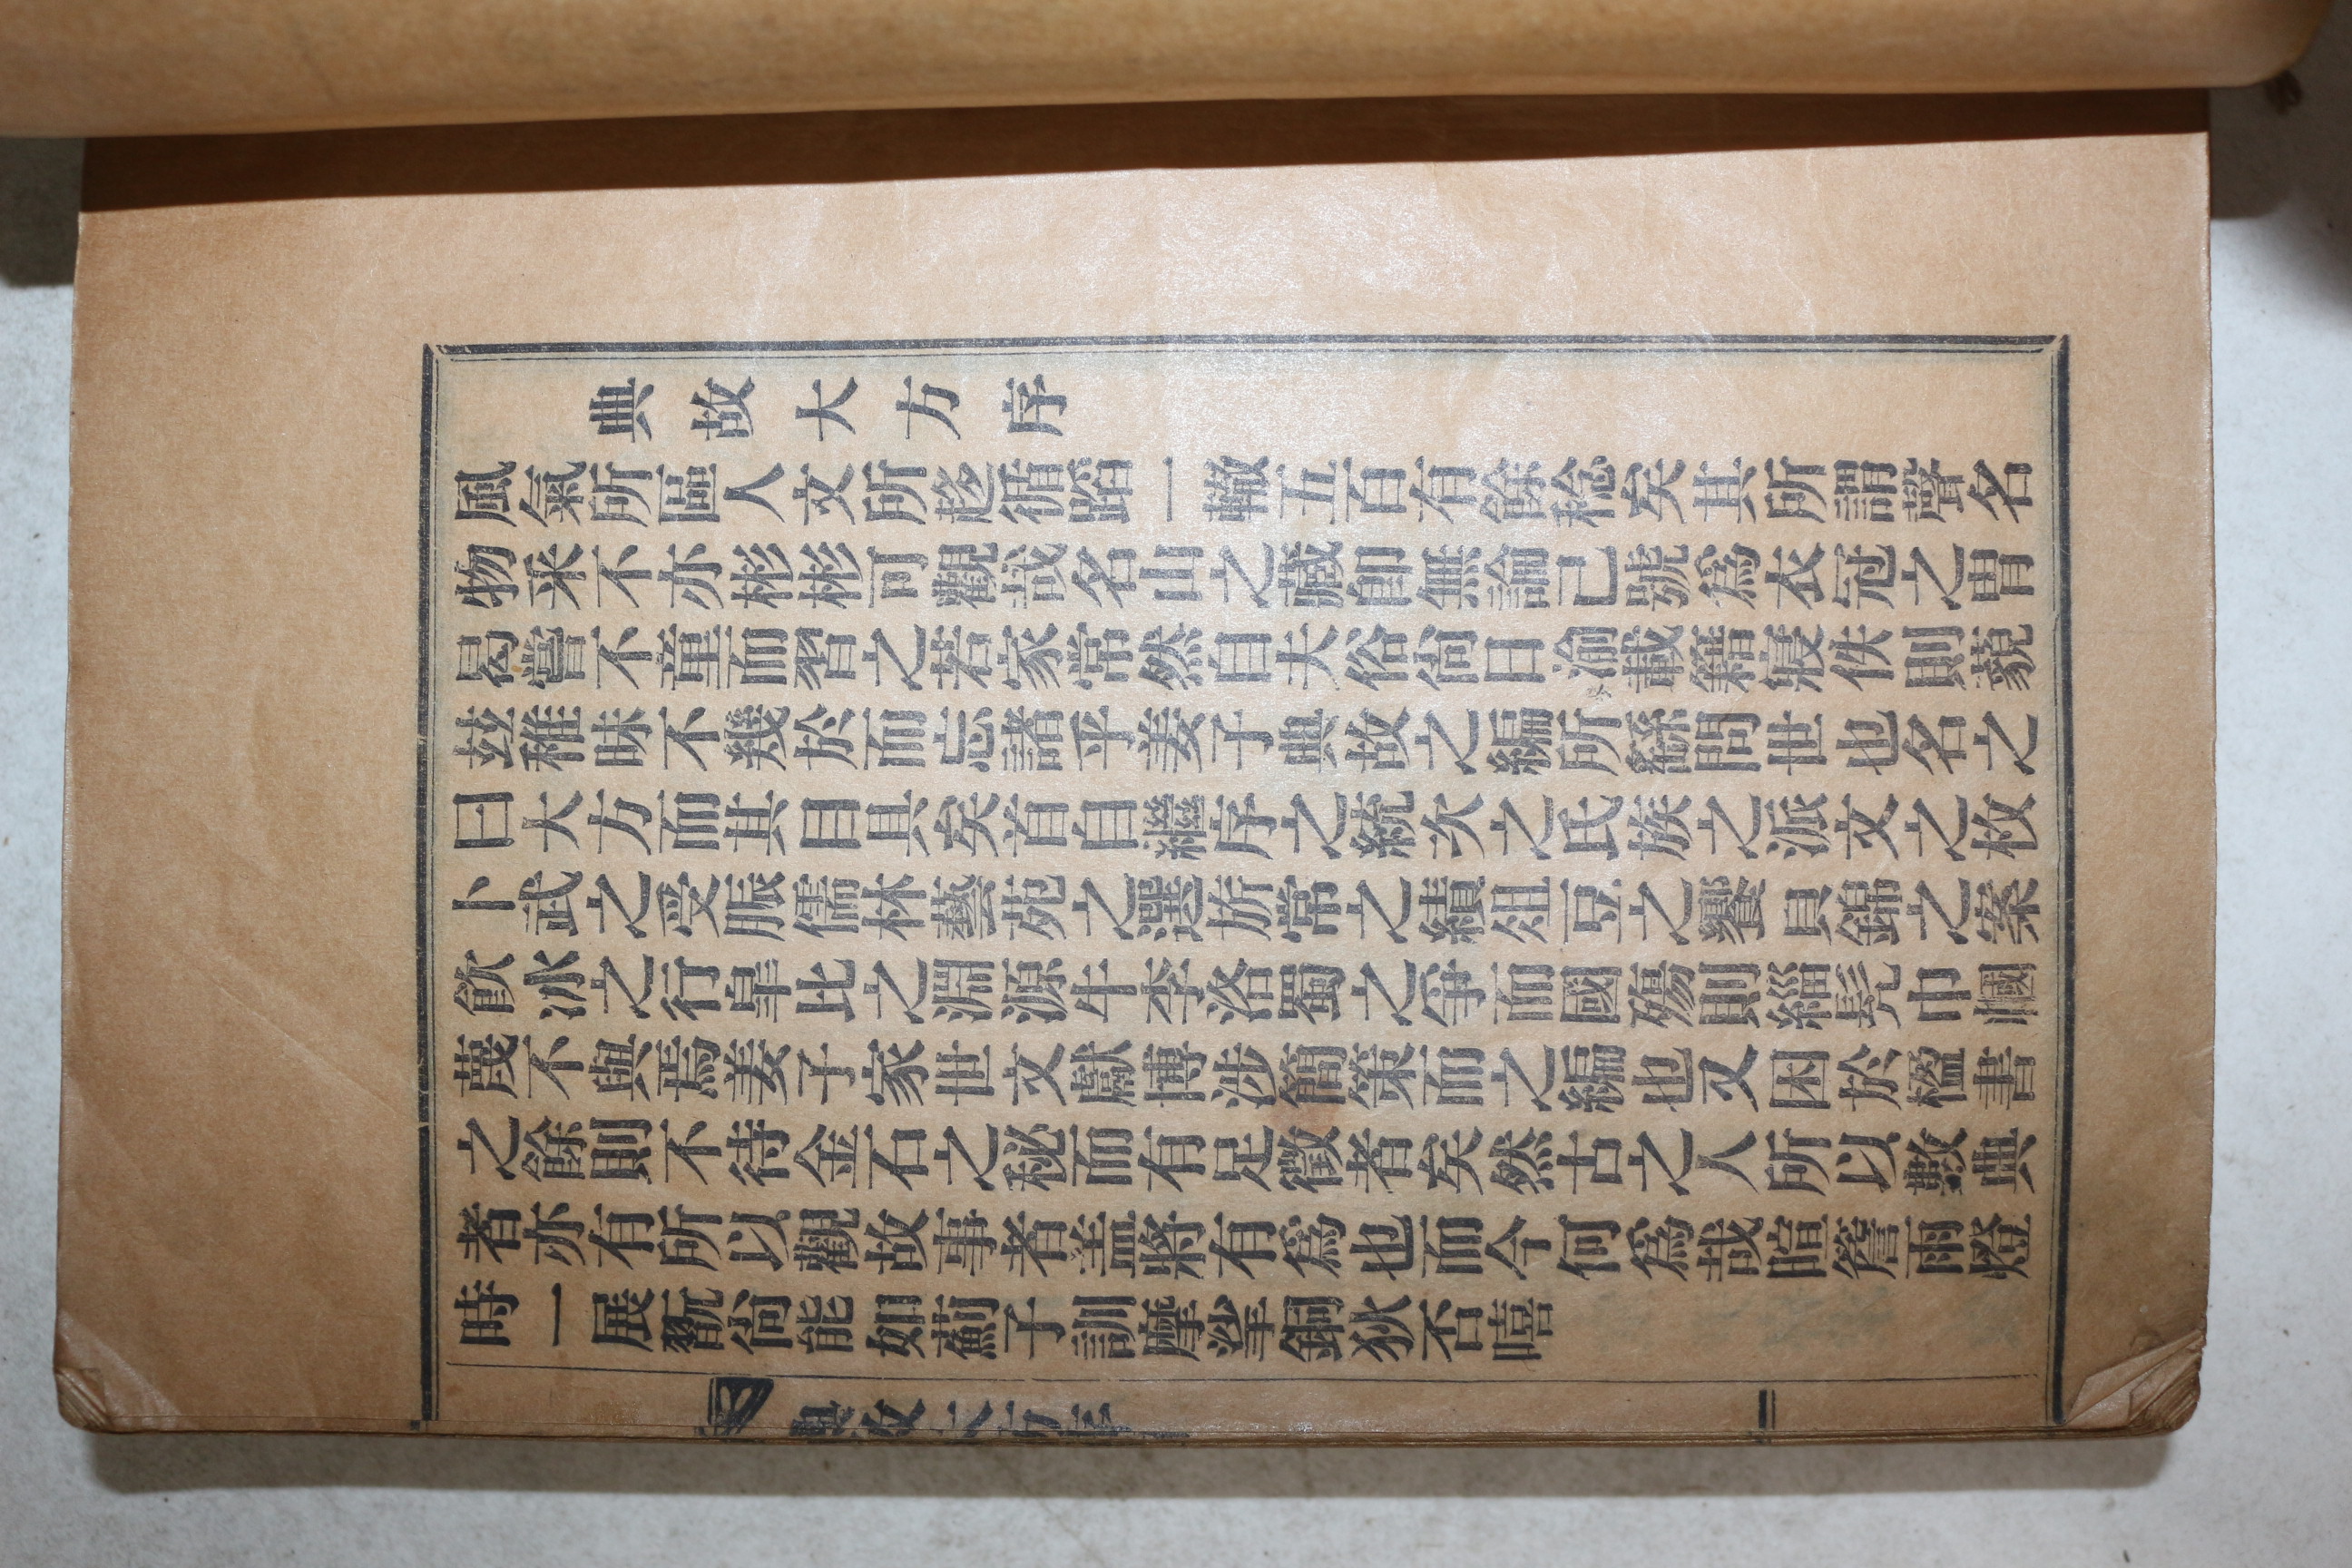 典故大方序
風氣所區人文所趍循蹈一轍五百有餘稔矣其所謂聲名
物采不亦彬彬可觀哉名山之藏卽無論已號爲衣冠之胄
曷嘗不童而習之若家常然自夫俗尙日渝載籍寢佚則藐
玆稚昧不幾於而忘諸乎姜子典故之編所繇間世也名之
曰大方而其目具矣首自繼序之統次之氏族之派文之枚
卜武之受脤儒林藝苑之選旂常之績俎豆之饗貝錦之案
飮冰之行皐比之淵源牛李洛蜀之爭而國殤則緇髡巾幗
蔑不與焉姜子家世文獻博涉簡策而之編也又困於楹書
之餘則不待金石之秘而有足徵者矣然古之人所以數典
者亦有所以觀故事者盖將有爲也而今何爲哉暗簷雨燈
時一展翫尙能如薊子訓摩挲銅狄否嘻
典故大方序